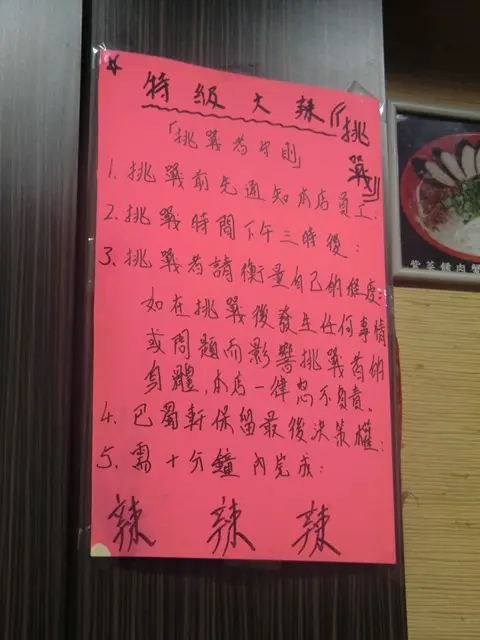 特級大辣《挑戰》
「挑戰者守則」
1. 挑戰前先通知本店員工.
2. 挑戰時間下午三時後:
3. 挑戰者請衡量自己的程度:
如在挑戰後發生任何事情
或問題而影響挑戰者的
身體,本店一律恕不負責.
4. 巴蜀軒保留最後決策權:
5. 需十分鐘內完成:
辣 辣 辣
紫菜豬肉